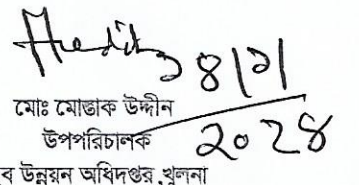 ৪|১|
২০২৪
মোঃ মোস্তাক উদ্দীন
উপপরিচালক
ব উন্নয়ন অধিদপ্তর,খুলনা